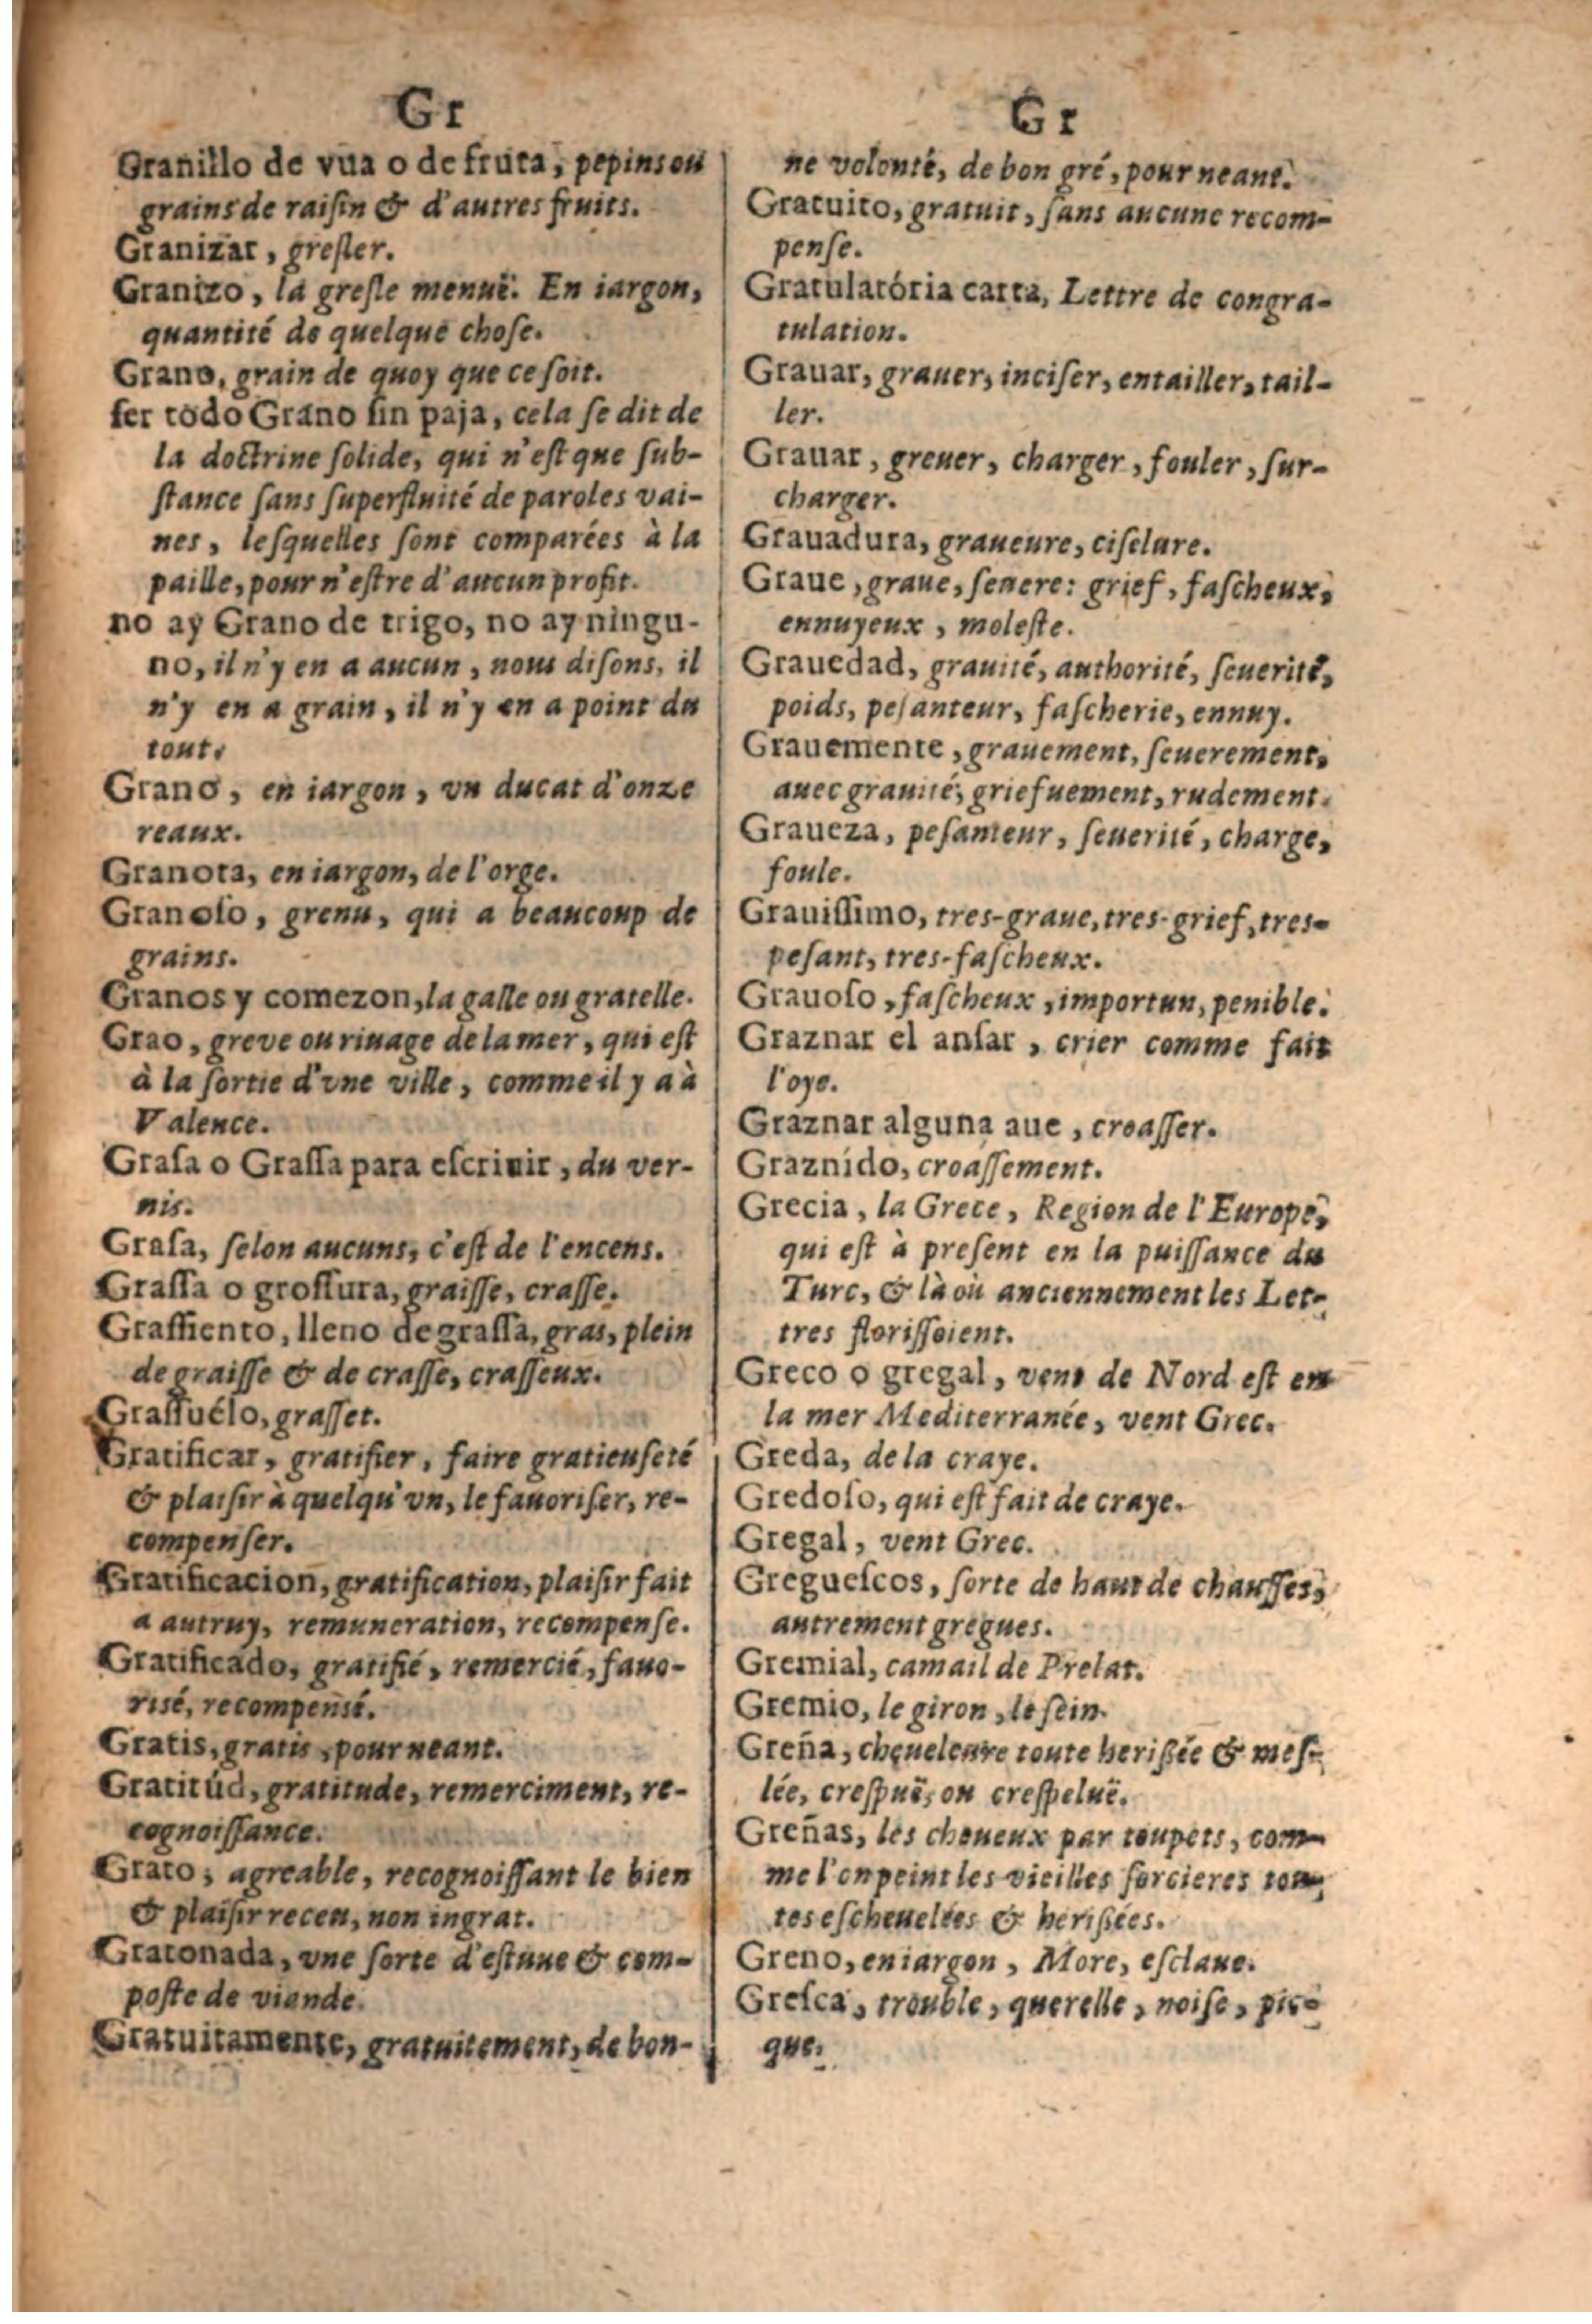 Gr
Granillo de vua o de fruta, pepins ou
grains de raiſin & d'autres fruits.
Granizar, greſler.
Granizo, la greſle menuë. En iargon,
quantité de quelque choſe.
Grano, grain de quoy que ce ſoit.
ſer todo Grano ſin paja, cela ſe dit de
la doctrine ſolide, qui n'eſt que ſub-
ſtance ſans ſuperfluité de paroles vai-
nes, leſquelles ſont comparées à la
paille, pour n'eſtre d'aucun profit.
no ay Grano de trigo, no ay ningu-
no, il n'y en a aucun, nous diſons, il
n'y en a grain, il n'y en a point du
tout.
Grano, en iargon, vn ducat d'onze
reaux.
Granota, en iargon, de l'orge.
Granoſo, grenu, qui a beaucoup de
grains.
Granos y comezon, la galle ou gratelle.
Grao, greve ou riuage de la mer, qui eſt
à la ſortie d'vne ville, comme il y a à
Valence.
Graſa o Graſſa para eſcriuir, du ver-
nis.
Graſa, ſelon aucuns, c'eſt de l'encens.
Graſſa o groſſura, graiſſe, craſſe.
Graſſiento, lleno de graſſa, gras, plein
de graiſſe & de craſſe, craſſeux.
Graſſuélo, graſſet.
Gratificar, gratifier, faire gratieuſeté
& plaiſir à quelqu'vn, le fauoriſer, re-
compenſer.
Gratificacion, gratification, plaiſir fait
a autruy, remuneration, recompenſe.
Gratificado, gratifié, remercié, fauo-
risé, recompensé.
Gratis, gratis, pour neant.
Gratitúd, gratitude, remerciment, re-
cognoiſſance.
Grato, agreable, recognoiſſant le bien
& plaiſir receu, non ingrat.
Gratonada, vne ſorte d'eſtuue & com-
poſte de viande.
Gratuitamente, gratuitement, de bon-
Gr
ne volonté, de bon gré, pour neant.
Gratuito, gratuit, ſans aucune recom-
penſe.
Gratulatória carta, Lettre de congra-
tulation.
Grauar, grauer, inciſer, entailler, tail-
ler.
Grauar, greuer, charger, fouler, ſur-
charger.
Grauadura, graueure, ciſelure.
Graue, graue, ſeuere: grief, faſcheux,
ennuyeux, moleſte.
Grauedad, grauité, authorité, ſeuerité,
poids, peſanteur, faſcherie, ennuy.
Grauemente, grauement, ſeuerement,
auec grauité, griefuement, rudement.
Graueza, peſanteur, ſeuerité, charge,
foule.
Grauiſſimo, tres-graue, tres-grief, tres-
peſant, tres-faſcheux.
Grauoſo, faſcheux, importun, penible.
Graznar el anſar, crier comme fait
l'oye.
Graznar alguna aue, croaſſer.
Graznído, croaſſement.
Grecia, la Grece, Region de l'Europe,
qui eſt à preſent en la puiſſance du
Turc, & là où anciennement les Let-
tres floriſſoient.
Greco o gregal, vent de Nord eſt en
la mer Mediterranée, vent Grec.
Greda, de la craye.
Gredoſo, qui eſt fait de craye.
Gregal, vent Grec.
Gregueſcos, ſorte de haut de chauſſes,
autrement gregues.
Gremial, camail de Prelat.
Gremio, le giron, le ſein.
Greña, cheueleure toute heriſſée & meſ-
lée, creſpuë, ou creſpeluë.
Greñas, les cheueux par toupets, com-
me l'on peint les vieilles ſorcieres tou-
tes eſcheuelées & heriſſées.
Greno, en iargon, More, eſclaue.
Greſca, trouble, querelle, noiſe, pic-
que.